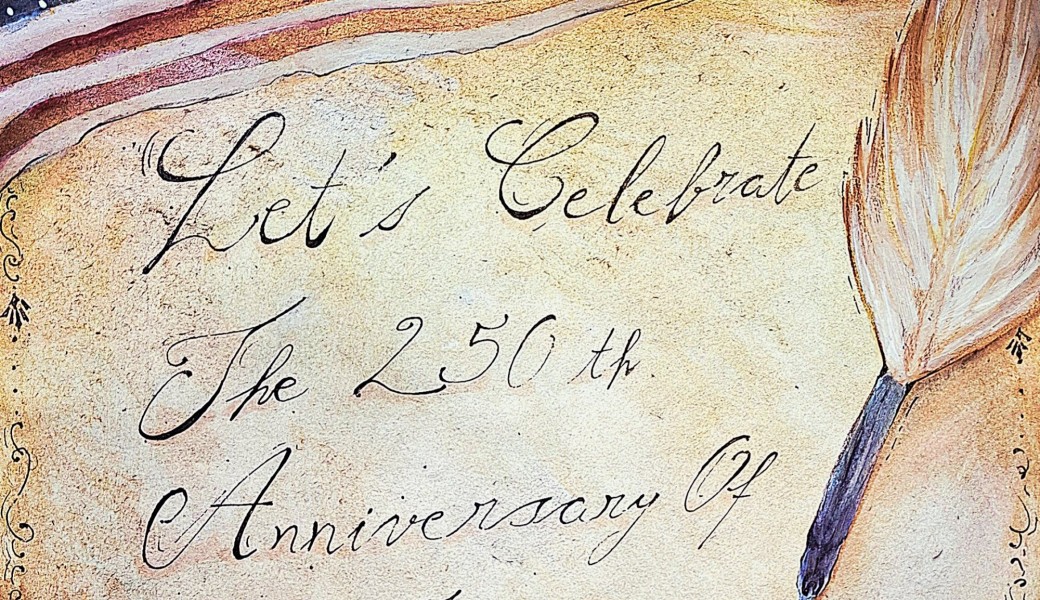 "Let's Celebrate
The 250th
Anniversary Of